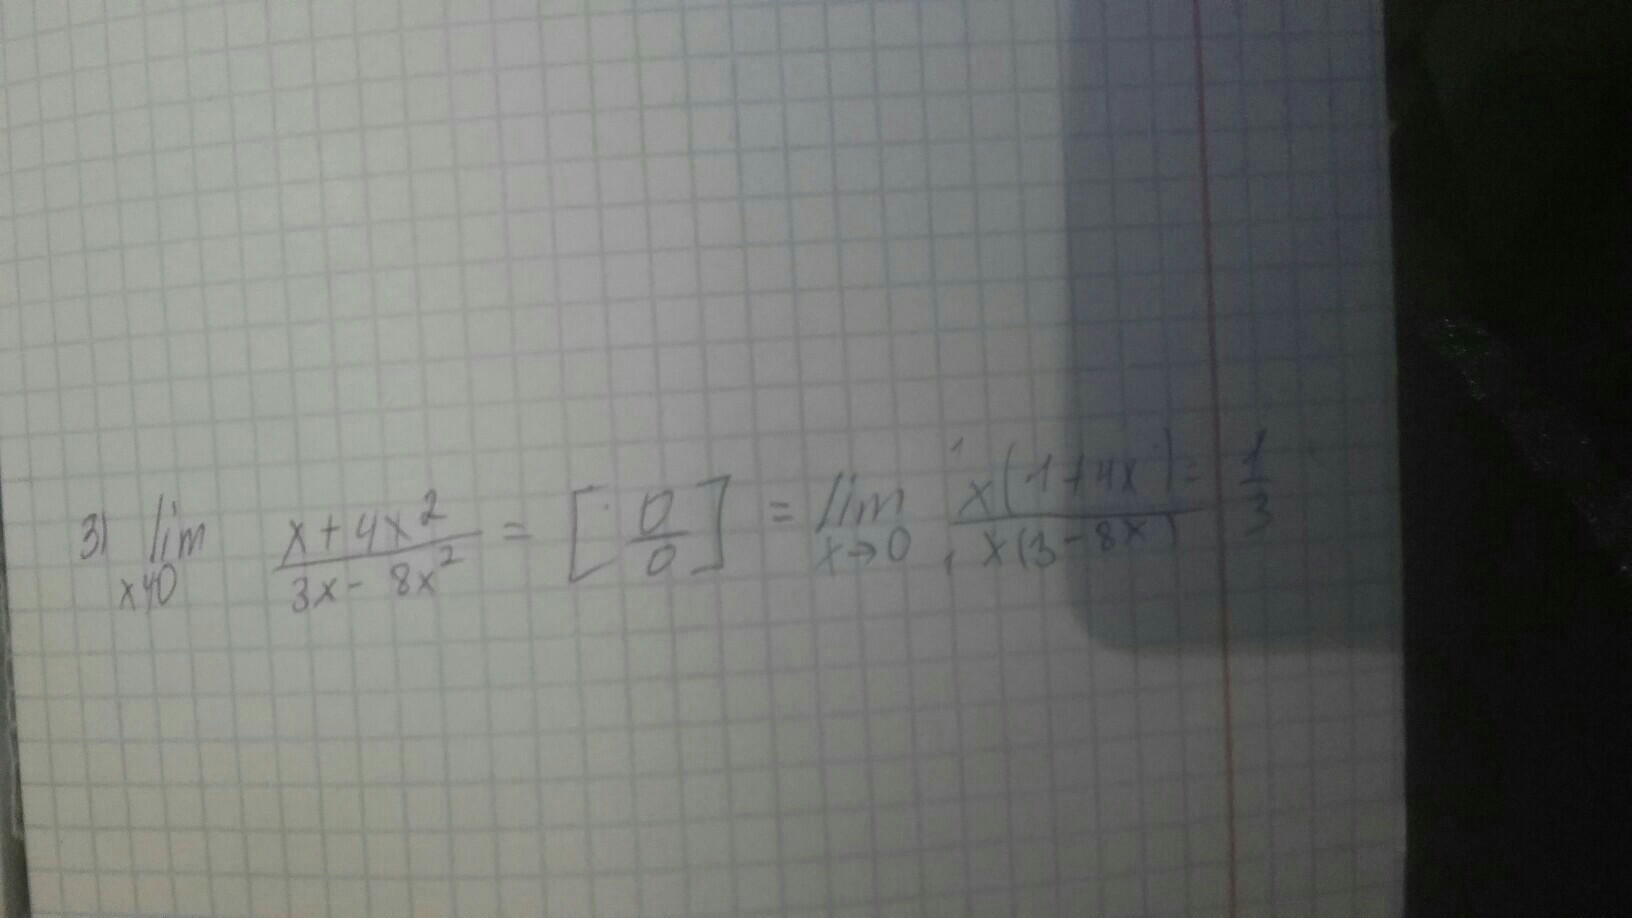 3) lim x→0 (x+4x²)/(3x-8x²) = [0/0] = lim x→0 x(1+4x)/x(3-8x) = 1/3